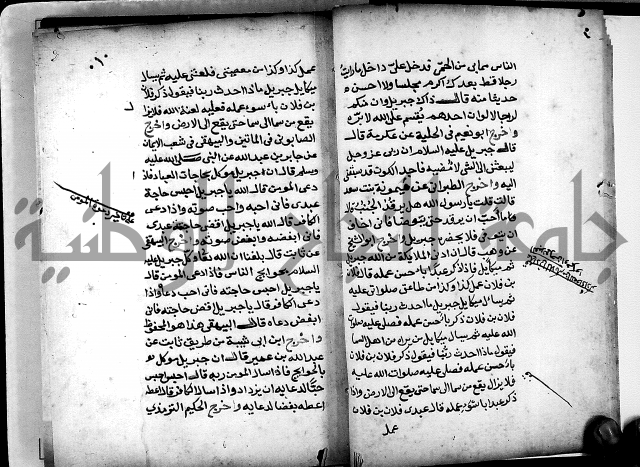 الناس سماني من الحمى فدخل على داخل مارايت
رجلا قط بعدك اكرم مجلسا ولا احسن
حديثا منه قال ذاك جبريل وان منكم
لرجالا لو ان احدهم يقسم على الله لابره
واخرج ابو نعيم في الحلية عن عكرمة قال
قال جبريل عليه السلام ان ربي عز وجل
ليبعثني الى الشي لامضيه فاجد الكون قد سبقني
اليه واخرج الطبراني عن ميمونة بنت سعد
قالت قلت يا رسول الله هل يرقد الجنب
ما احب ان يرقد حتى يتوضا فاني اخاف
ان يتوفى فلا يحضره جبريل واخرج ابو الشيخ
عن وهب قال ان ادنى الملايكة من الله جبريل
ثم ميكايل فاذا ذكر عبدا باحسن عمله قال فلان
بن فلان عمل كذا وكذا من طاعتي صلواتي عليه
ثم سال ميكايل جبريل ما احدث ربنا فيقول
فلان بن فلان ذكر باحسن عمله فصلى عليه صلوات
الله عليه ثم سال ميكايل من يراه من اهل السما
فيقول ماذا احدث ربنا فيقول ذكر فلان بن فلان
باحسن عمله فصلى عليه صلوات الله عليه
فلا يزال يقع من سما الى سما حتى يقع الى الارض واذا
ذكر عبدا باسوء عمله قال عبدي فلان بن فلان
عمل
عمل كذا وكذا من معصيتي فلعنتي عليه ثم سال
ميكايل جبريل ماذا احدث ربنا فيقول ذكر فلان
بن فلان باسوء عمله فعليه لعنة الله فلا يزال
يقع من سما الى سما حتى يقع الى الارض واخرج
الصابوني في المائتين والبيهقي في شعب الايمان
عن جابر بن عبد الله عن النبي صلى الله عليه
وسلم قال ان جبريل موكل بحاجات العباد فاذا
دعى المومن قال الله يا جبريل احبس حاجة
عبدي فاني احبه واحب صوته واذا دعى
الكافر قال الله يا جبريل اقض حاجة عبدي
فاني ابغضه وابغض صوته واخرج البيهقي
عن ثابت قال بلغنا ان الله وكل جبريل عليه
السلام بحوايج الناس فاذا دعى المومن قال
يا جبريل احبس حاجته فاني احب دعاه واذا
دعى الكافر قال يا جبريل اقض حاجته فاني
ابغض دعاه قال البيهقي هذا هو المحفوظ
واخرج ابن ابي شيبة من طريق ثابت عن
عبد الله بن عمير قال ان جبريل موكل
بالحوايج فاذا سال المومن ربه قال احبس احبس
حبا لدعايه ان يزداد واذا سال الكافر قال اعطه
اعطه بغضا لدعايه واخرج الحكيم الترمذي
جامعة النجاح الوطنية